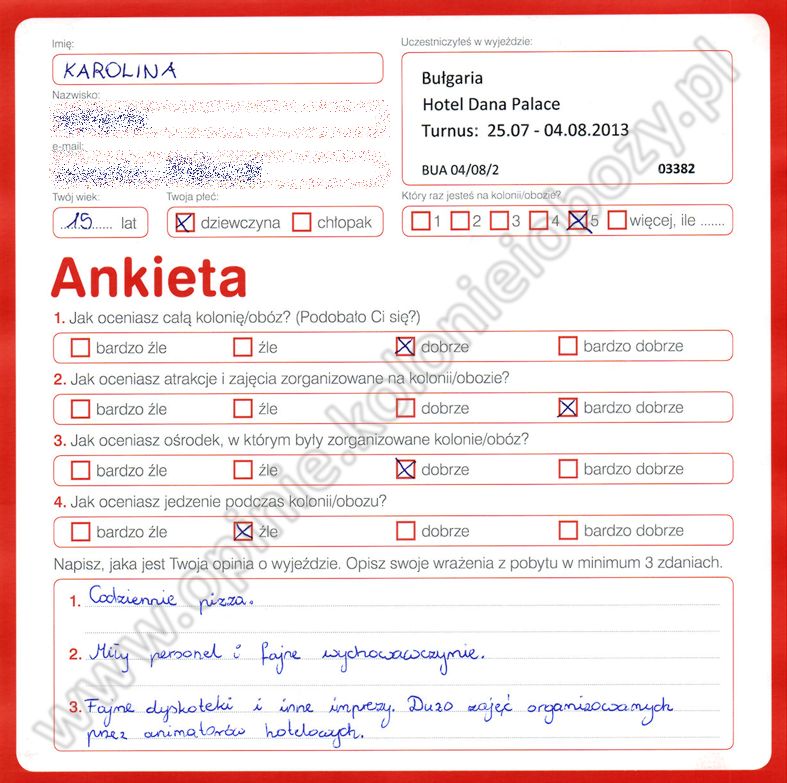 Imię:
KAROLINA
Nazwisko:
e-mail:
Twój wiek:
15 lat
Twoja płeć:
dziewczyna chłopak
Uczestniczyłeś w wyjeździe:
Bułgaria
Hotel Dana Palace
Turnus: 25.07 - 04.08.2013
BUA 04/08/2 03382
Który raz jesteś na kolonii/obozie?
1 2 3 4 5 więcej, ile .......
Ankieta
1. Jak oceniasz całą kolonię/obóz? (Podobało Ci się?)
bardzo źle źle dobrze bardzo dobrze
2. Jak oceniasz atrakcje i zajęcia zorganizowane na kolonii/obozie?
bardzo źle źle dobrze bardzo dobrze
3. Jak oceniasz ośrodek, w którym były zorganizowane kolonie/obóz?
bardzo źle źle dobrze bardzo dobrze
4. Jak oceniasz jedzenie podczas kolonii/obozu?
bardzo źle źle dobrze bardzo dobrze
Napisz, jaka jest Twoja opinia o wyjeździe. Opisz swoje wrażenia z pobytu w minimum 3 zdaniach.
1. Codziennie pizza.
2. Miły personel i fajne wychowawczynie.
3. Fajne dyskoteki i inne imprezy. Dużo zajęć organizowanych
przez animatorów hotelowych.
www.opinie.kolonieiobozy.pl